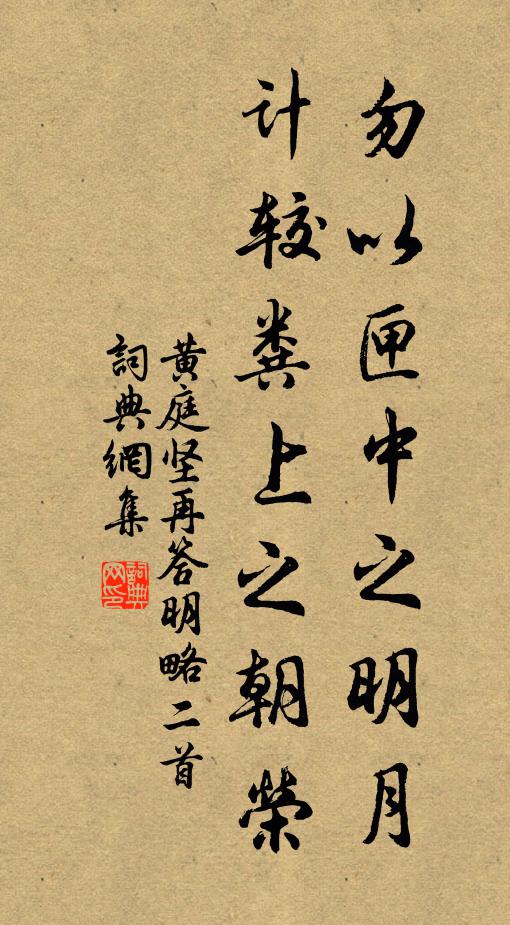 勿以匣中之明月
计较粪上之朝榮
黄庭坚再答明略二首
詞典網集
詞典网印